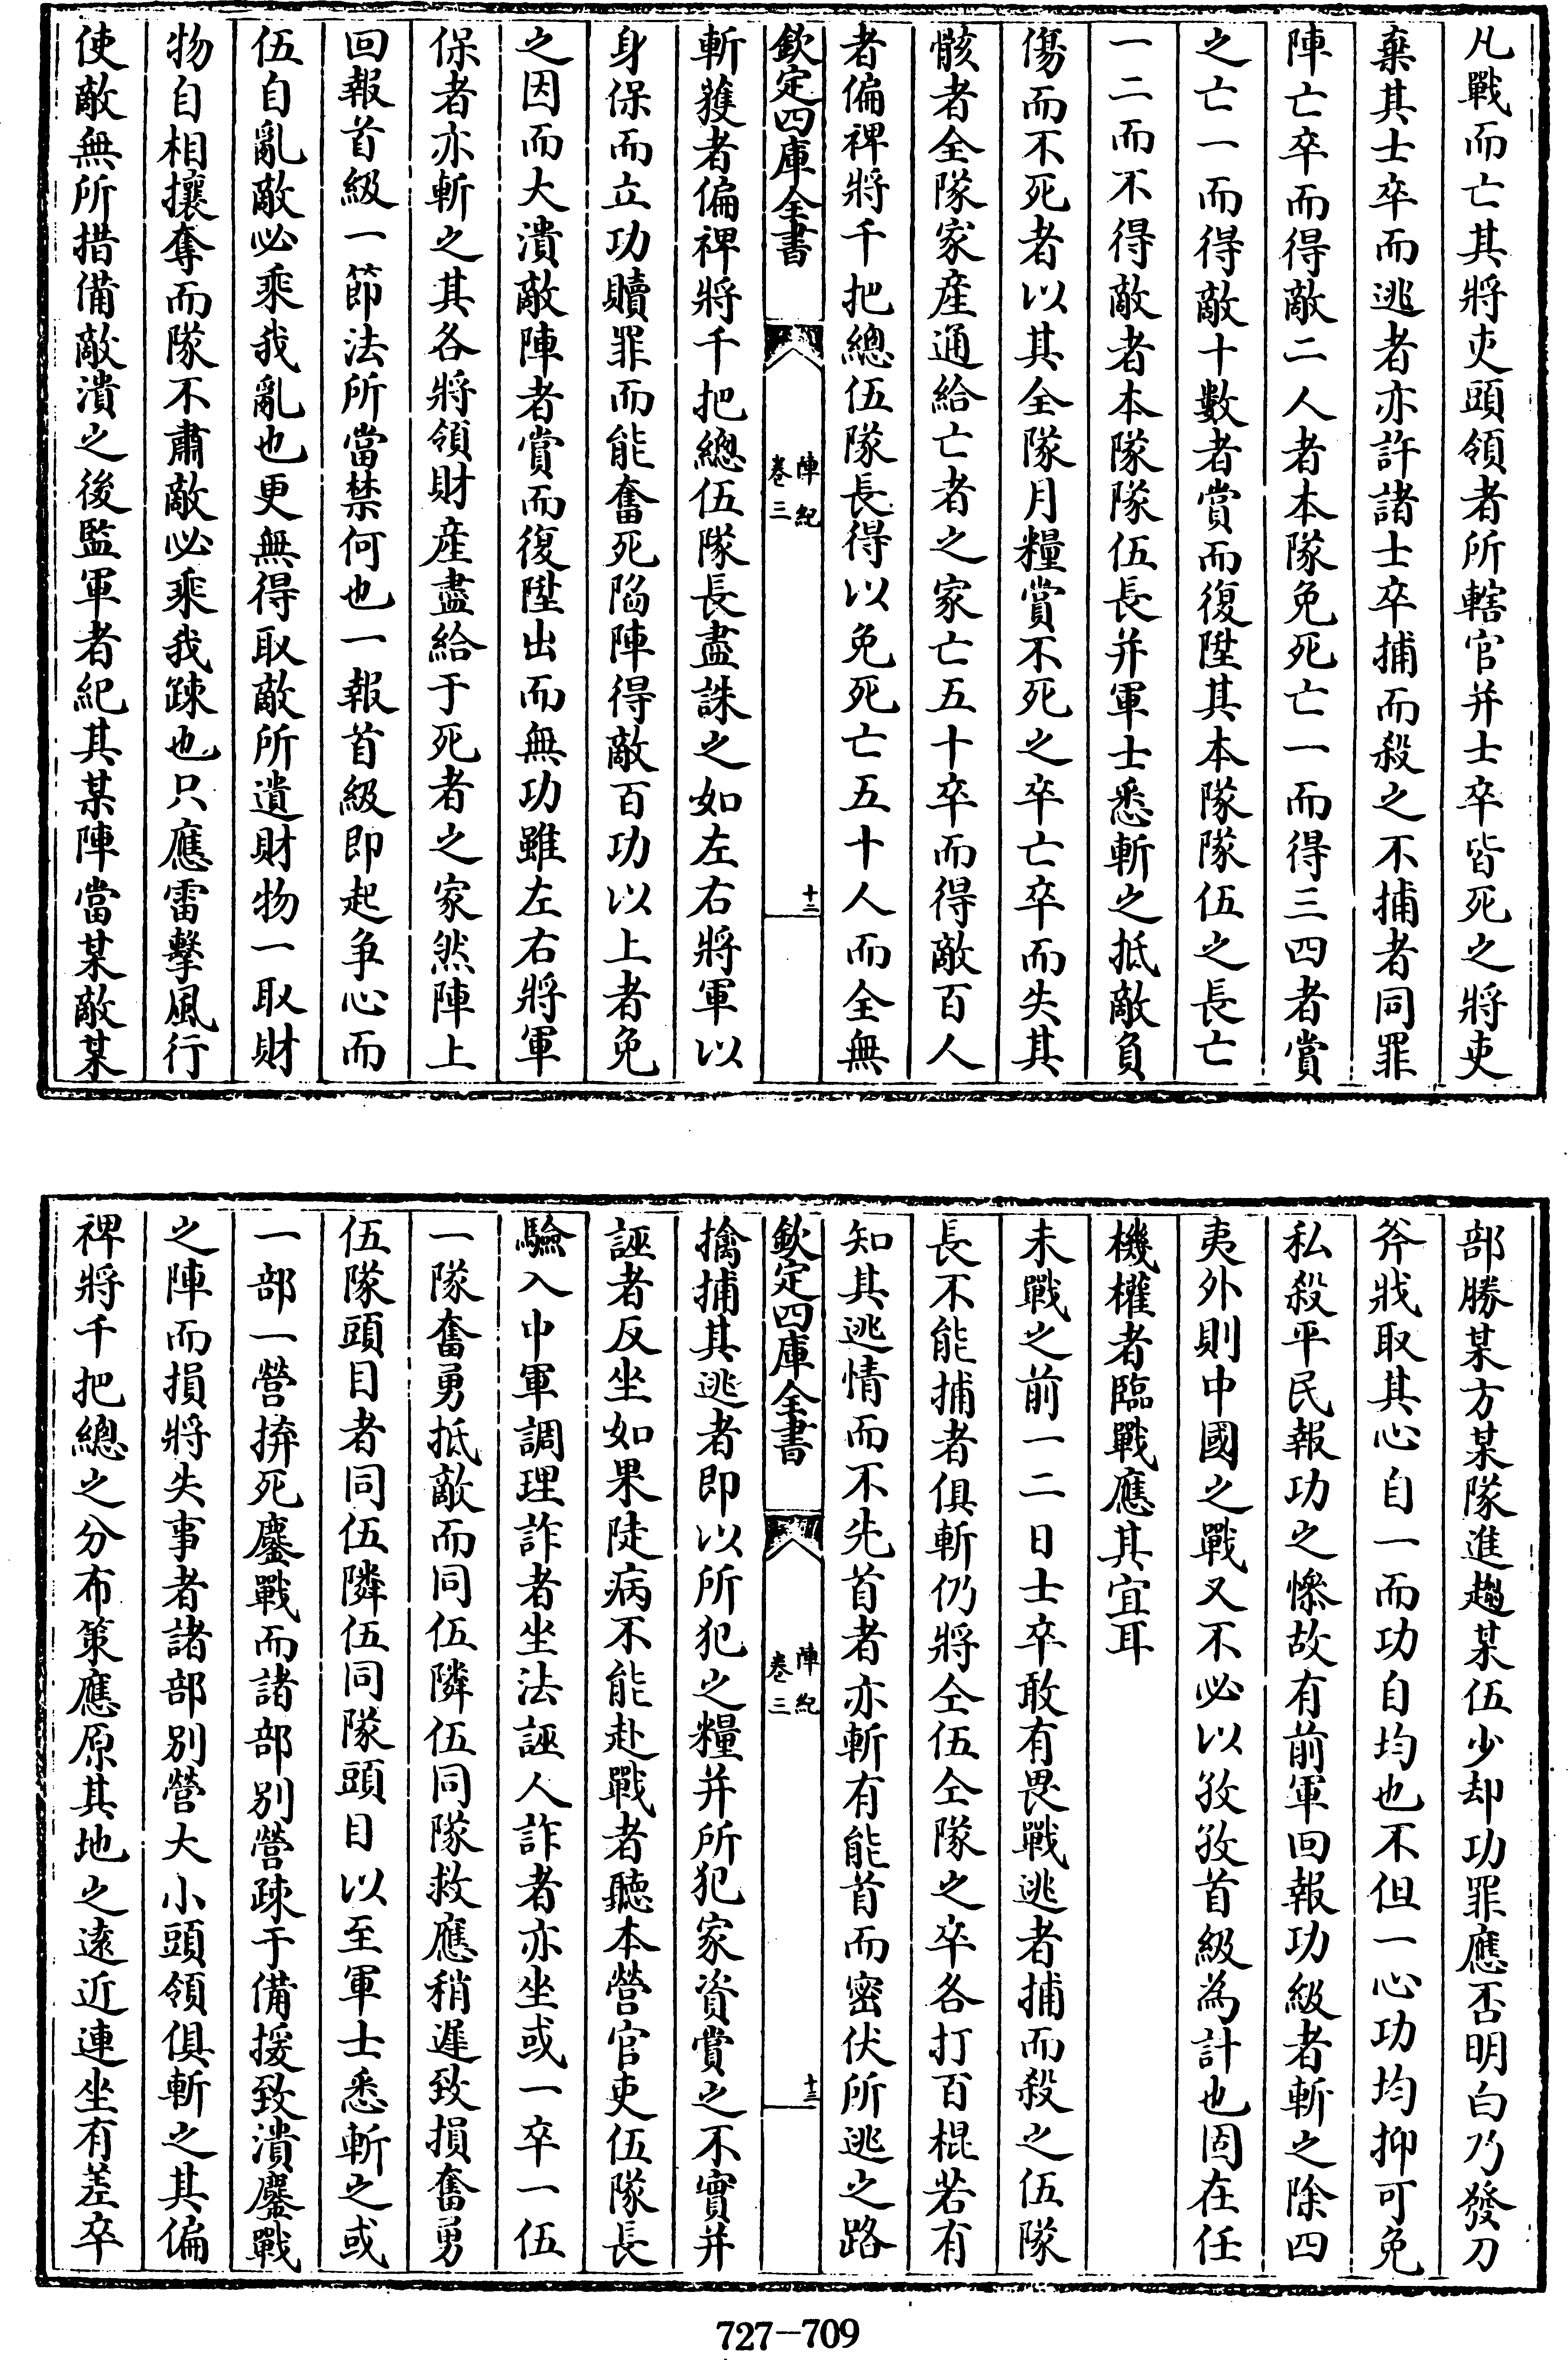 凡戰而亡其將吏頭領者所轄官并士卒皆死之將吏
棄其士卒而逃者亦許諸士卒捕而殺之不捕者同罪
陣亡卒而得敵二人者本隊免死亡一而得三四者賞
之亡一而得敵十數者賞而復陞其本隊隊伍之長亡
一二而不得敵者本隊隊伍長并軍士悉斬之抵敵負
傷而不死者以其全隊月糧賞不死之卒亡卒而失其
骸者全隊家產通給亡者之家亡五十卒而得敵百人
者偏裨將千把總伍隊長得以免死亡五十人而全無
欽定四庫全書
陣紀
卷三
十二
斬獲者偏裨將千把總伍隊長盡誅之如左右將軍以
身保而立功贖罪而能奮死陷陣得敵百功以上者免
之因而大潰敵陣者賞而復陞出而無功雖左右將軍
保者亦斬之其各將領財產盡給于死者之家然陣上
回報首級一節法所當禁何也一報首級即起爭心而
伍自亂敵必乘我亂也更無得取敵所遺財物一取財
物自相攘奪而隊不肅敵必乘我踈也只應雷擊風行
使敵無所措備敵潰之後監軍者紀其某陣當某敵某
部勝某方某隊進趨某伍少却功罪應否明白乃發刀
斧戕取其心自一而功自均也不但一心功均抑可免
私殺平民報功之慘故有前軍回報功級者斬之除四
夷外則中國之戰又不必以孜孜首級為計也固在任
機權者臨戰應其宜耳
未戰之前一二日士卒敢有畏戰逃者捕而殺之伍隊
長不能捕者俱斬仍將仝伍仝隊之卒各打百棍若有
知其逃情而不先首者亦斬有能首而密伏所逃之路
欽定四庫全書
陣紀
卷三
十三
擒捕其逃者即以所犯之糧并所犯家資賞之不實并
誣者反坐如果陡病不能赴戰者聽本營官吏伍隊長
驗入中軍調理詐者坐法誣人詐者亦坐或一卒一伍
一隊奮勇抵敵而同伍隣伍同隊救應稍遲致損奮勇
伍隊頭目者同伍隣伍同隊頭目以至軍士悉斬之或
一部一營拚死鏖戰而諸部別營踈于備援致潰鏖戰
之陣而損將失事者諸部別營大小頭領俱斬之其偏
裨將千把總之分布策應原其地之遠近連坐有差卒
727-709